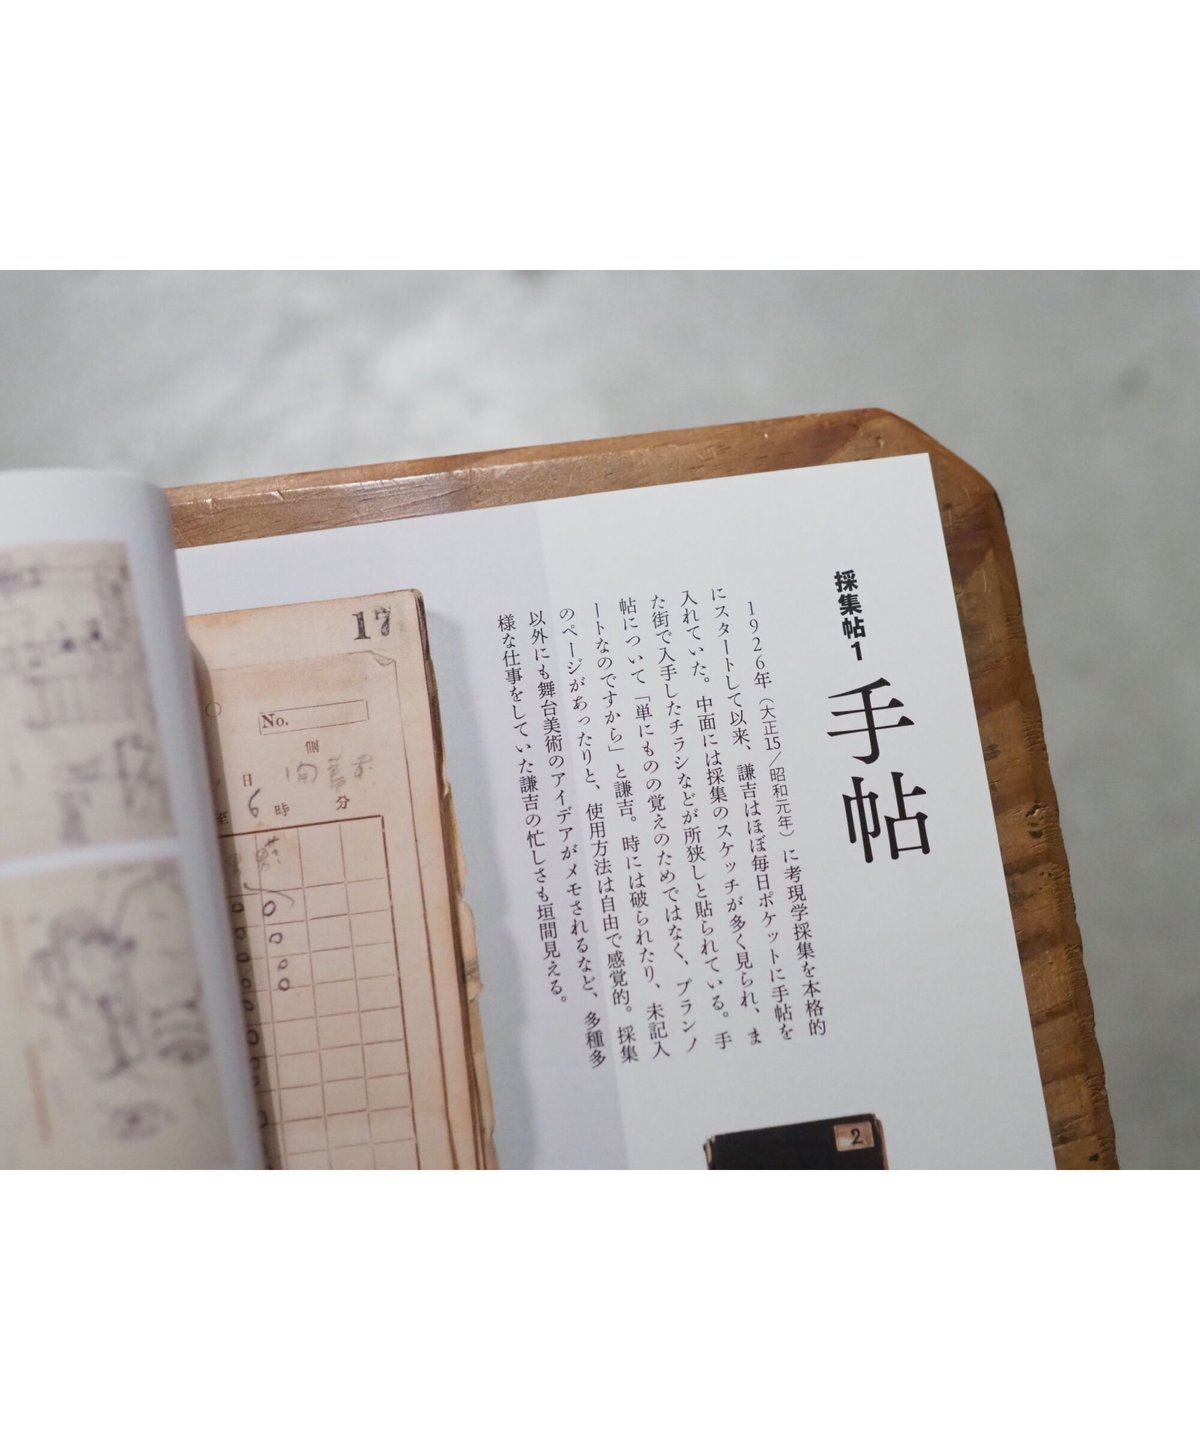 採集帖1
手帖
1926年（大正15／昭和元年）に考現学採集を本格的
にスタートして以来、謙吉はほぼ毎日ポケットに手帖を
入れていた。中面には採集のスケッチが多く見られ、ま
た街で入手したチラシなどが所狭しと貼られている。手
帖について「単にものの覚えのためではなく、プランノ
ートなのですから」と謙吉。時には破られたり、未記入
のページがあったりと、使用方法は自由で感覚的。採集
以外にも舞台美術のアイデアがメモされるなど、多種多
様な仕事をしていた謙吉の忙しさも垣間見える。
17
No.
側
日
至 6 時 分
2